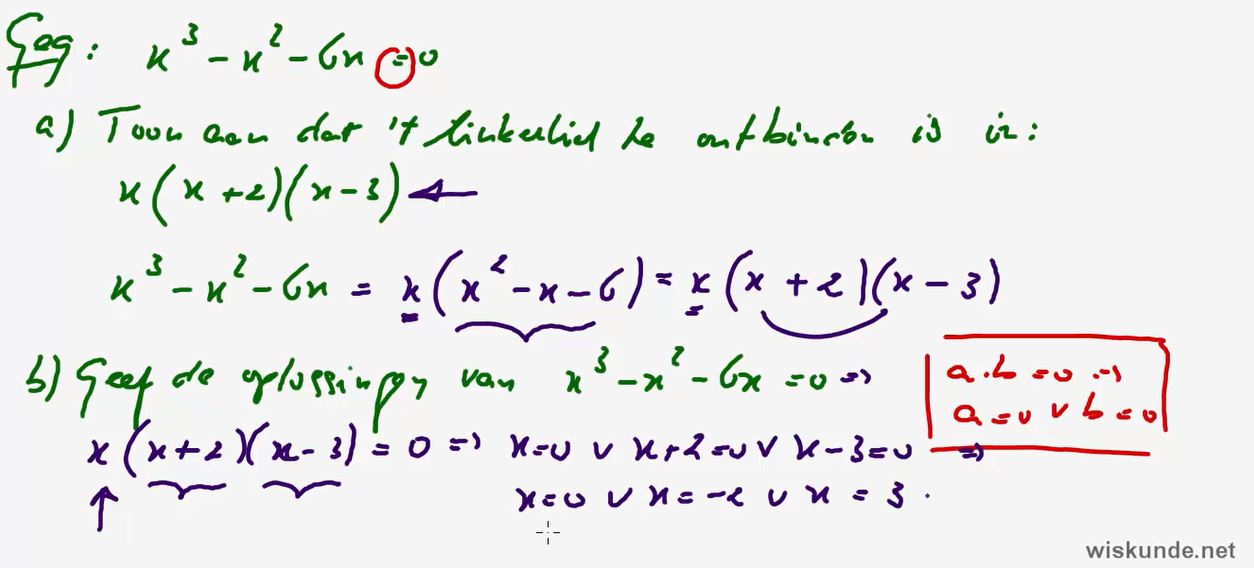 Geg: x³ - x² - 6x = 0
a) Toon aan dat 't linkerlid te ontbinden is in:
x(x+2)(x-3)
x³ - x² - 6x = x(x² - x - 6) = x(x+2)(x-3)
b) Geef de oplossingen van x³ - x² - 6x = 0 =>
a.b = 0 =>
a=0 v b=0
x(x+2)(x-3) = 0 => x=0 v x+2=0 v x-3=0 =>
x=0 v x=-2 v x = 3.
wiskunde.net